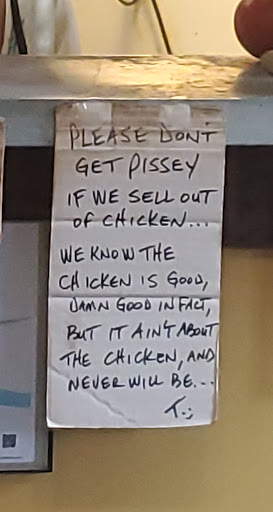 PLEASE DON'T
GET PISSEY
IF WE SELL OUT
OF CHICKEN...
WE KNOW THE
CHICKEN IS GOOD,
DAMN GOOD IN FACT,
BUT IT AIN'T ABOUT
THE CHICKEN, AND
NEVER WILL BE...